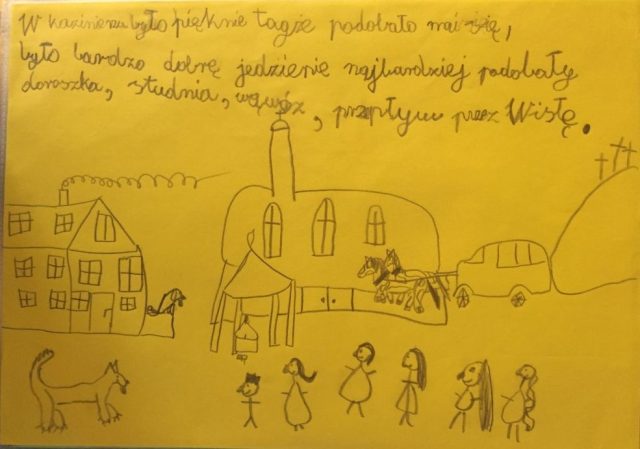 W kazimierzu było pięknie tagże podobało mi się,
było bardzo dobrę jedzienie najbardziej podobały
doroszka, studnia, wąwóz, przepływ przez Wisłę.